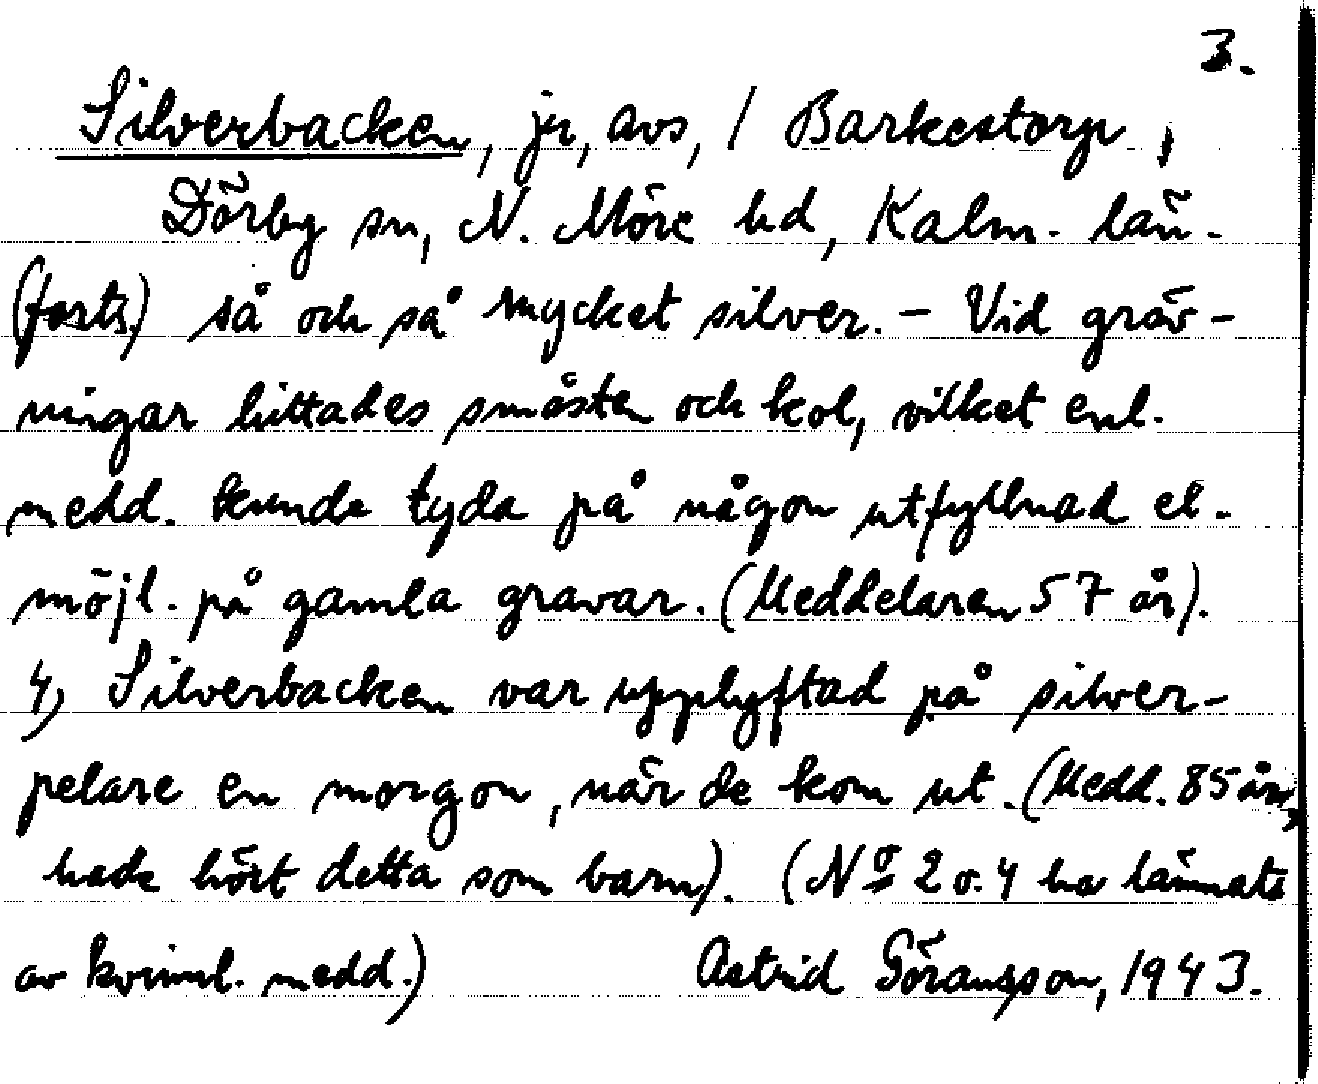 3.
Silverbacken, jr, avs, / Barkestorp,
Dörby sn, N. Möre hd, Kalm. län.
(forts.) så och så mycket silver. - Vid gräv-
ningar hittades småsten och kol, vilket enl.
medd. kunde tyda på någon utfyllnad el.
möjl. på gamla gravar. (Meddelaren 57 år).
4) Silverbacken var upplyftad på silver-
pelare en morgon, när de kom ut. (Medd. 85 år,
hade hört detta som barn). (Nº 2 o. 4 ha lämnats
av kvinnl. medd.) Astrid Göransson, 1943.